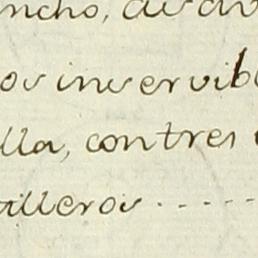 ncho, de dv
os inservibl
lla, contres
tilleros .....